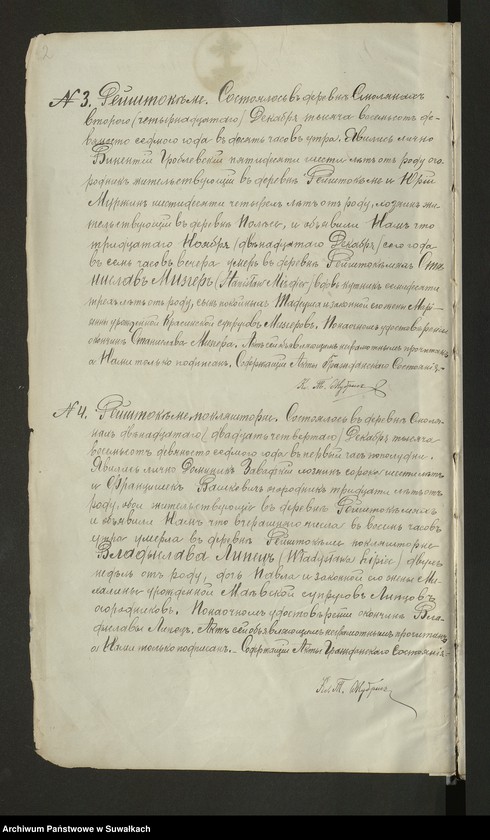 2
№ 3. Рейштокѣме. Состоялось въ деревнѣ Смолянахъ
второго (четырнадцатаго) Декабря тысяча восемьсотъ де-
вяносто седмого года въ десять часовъ утра. Явились лично
Викентій пятидесяти шести лѣтъ отъ роду ого-
родникъ жительствующій въ деревнѣ Рейштокѣме и Юрій
шестидесяти четырехъ лѣтъ отъ роду, жи-
тельствующій въ деревнѣ и объявили Намъ что
тридцатаго Ноября (двѣнадцатаго Декабря) сего года
въ семь часовъ вечера умеръ въ деревнѣ Ста-
ниславъ Мизгеръ вдовъ семидесяти
трехъ лѣтъ отъ роду, сынъ покойныхъ и законной его жены Марі-
анны урожденной супруговъ Мизгеровъ. По наочномъ удостовѣреніи
о кончинѣ Станислава Актъ сей объявляющимъ неграмотнымъ прочитанъ
а Нами только подписанъ. Содержащій Акты Гражданскаго Состоянія.
№ 4. Рейштокѣме поклашторне. Состоялось въ деревнѣ Смоля-
нахъ двѣнадцатаго (двадцать четвертаго) Декабря тысяча
восемьсотъ девяносто седмого года въ первый часъ пополудни.
Явились лично сорока шести лѣтъ
и Францишекъ огородникъ тридцати лѣтъ отъ
роду, оба жительствующіе въ деревнѣ
и объявили Намъ что вчерашняго числа въ восемь часовъ
утра умерла въ деревнѣ Рейштокѣме поклашторне
Владыслава Липецъ (Władysława Lipiec) двухъ
недѣль отъ роду, дочь Павла и законной его жены Ме-
ланіи урожденной супруговъ Липцовъ
огородниковъ. По наочномъ удостовѣреніи о кончинѣ Вла-
диславы Липецъ. Актъ сей объявляющимъ неграмотнымъ прочитанъ
а Нами только подписанъ. Содержащій Акты Гражданскаго Состоянія
Archiwum Państwowe w Suwałkach